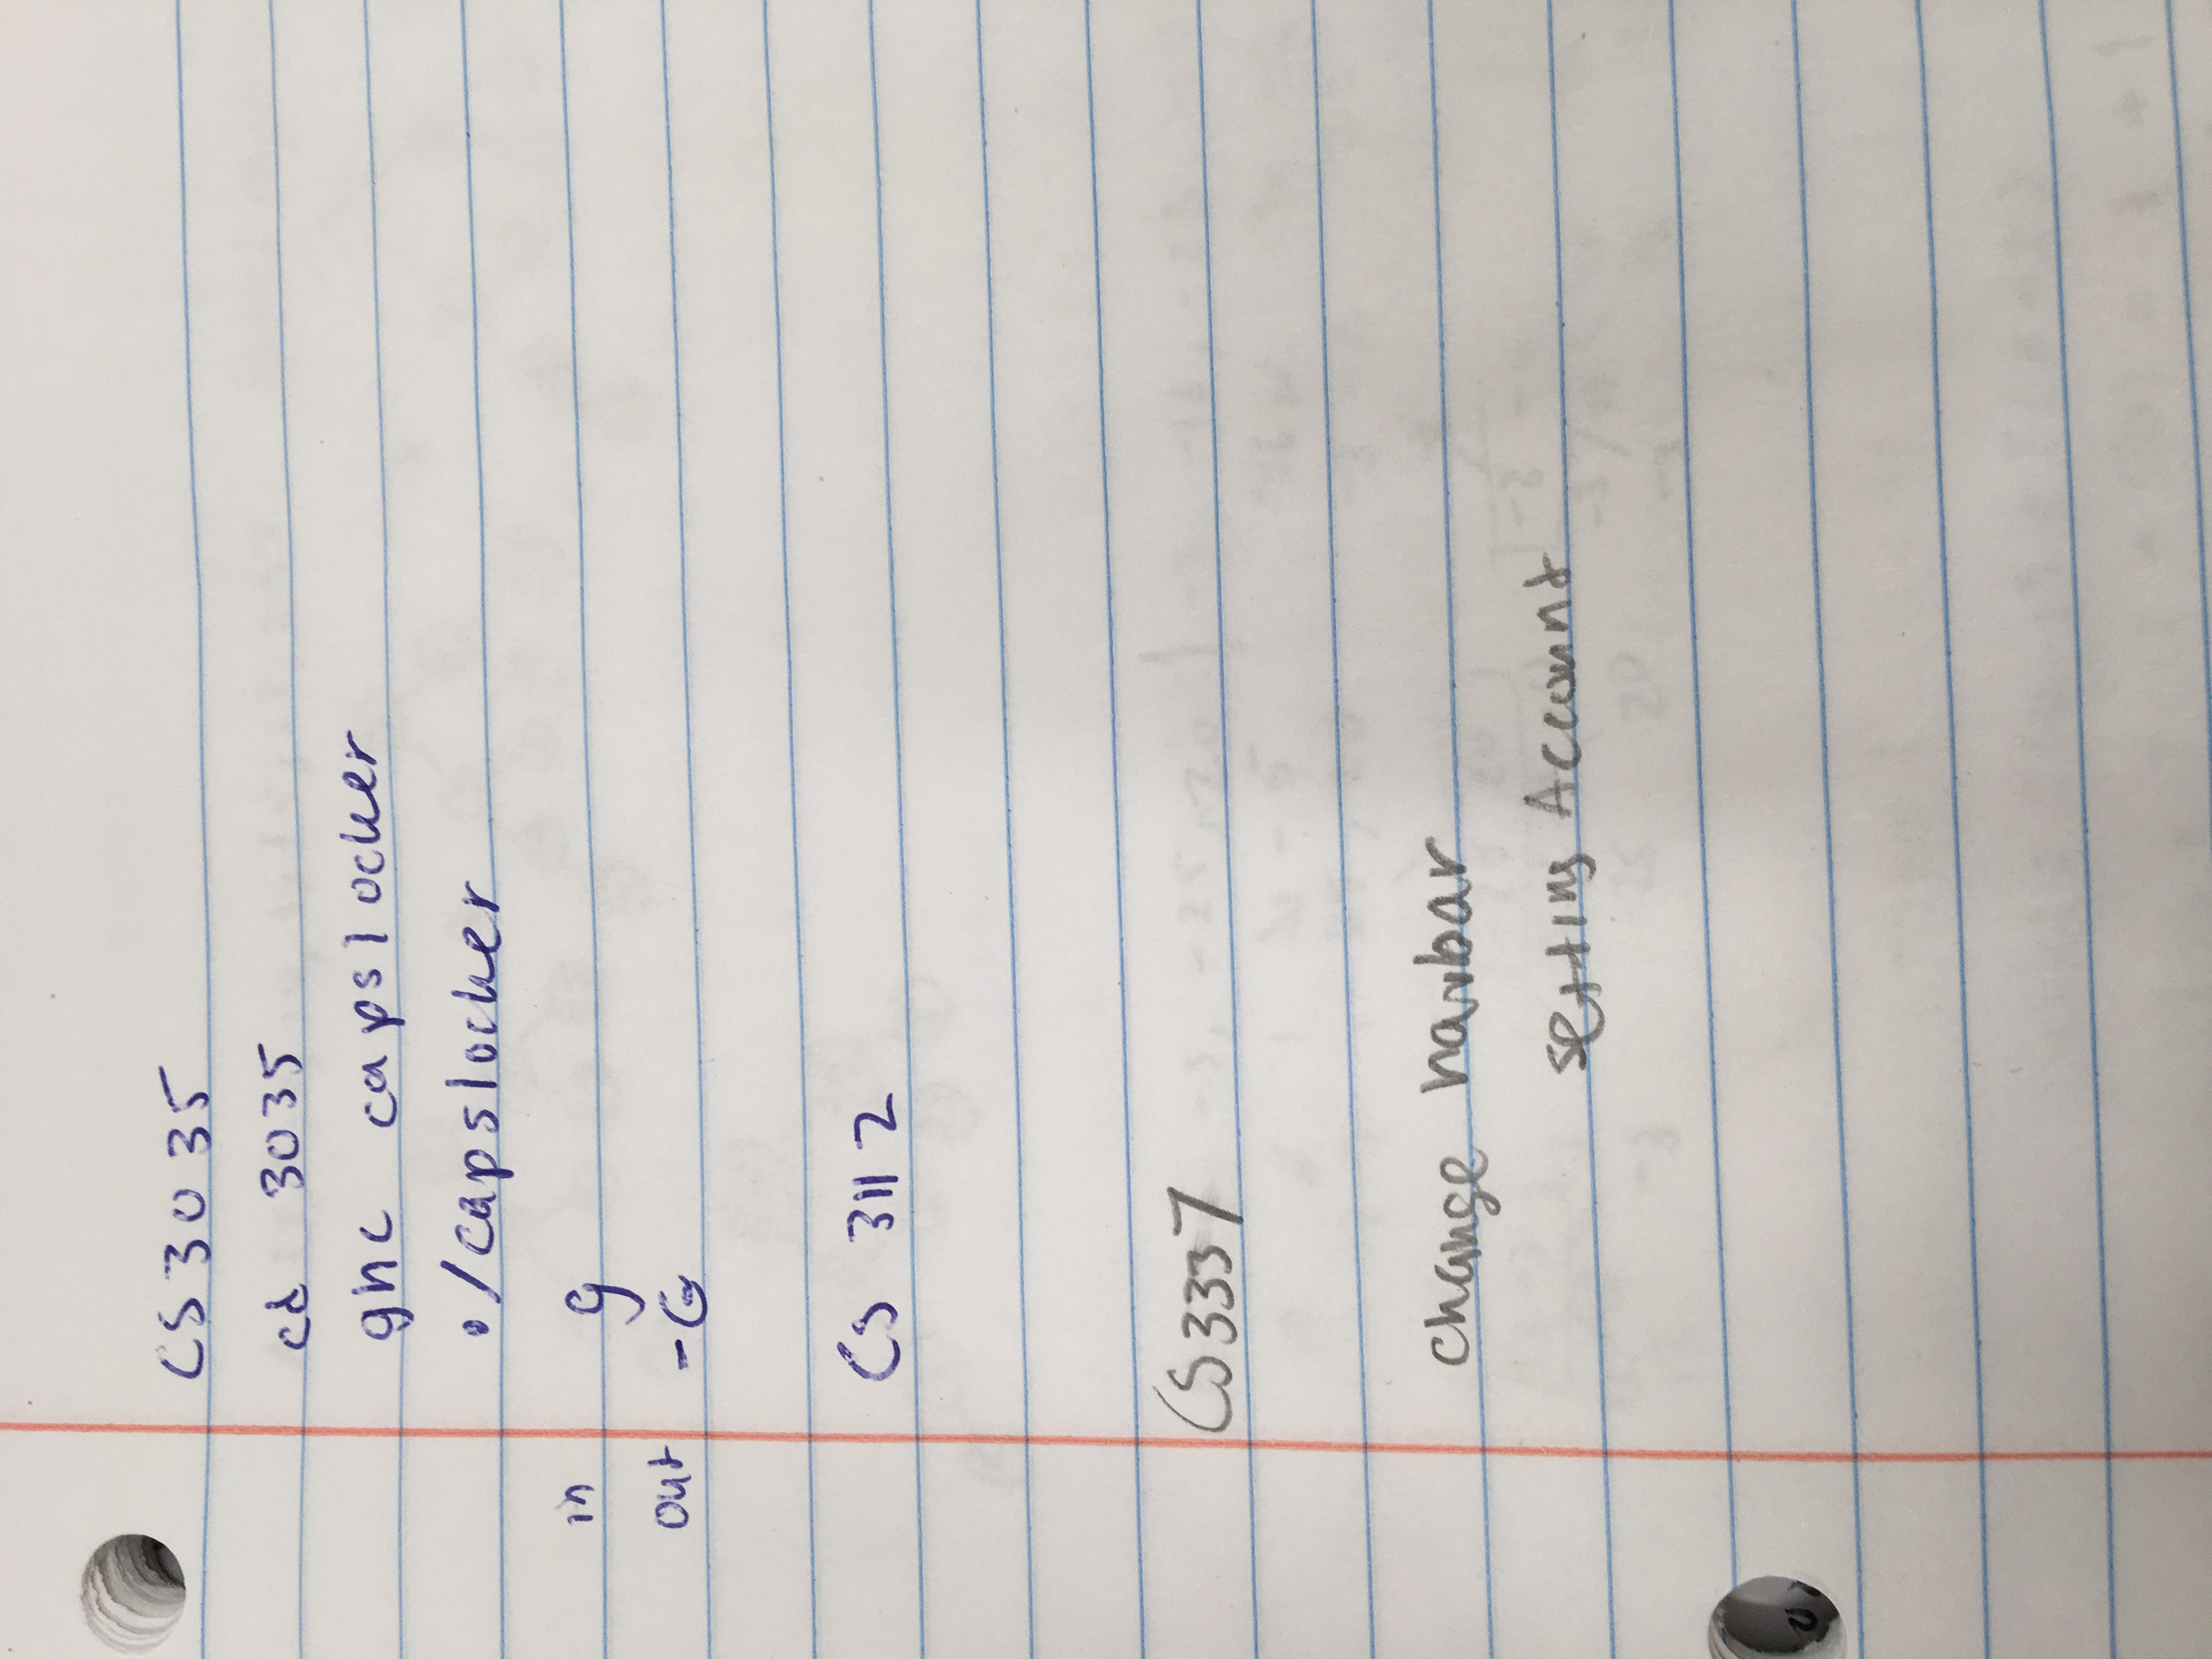 CS3035
cd 3035
ghc capslocker
./capslocker
in g
out -G
CS 3112
CS3337
change navbar
setting Account